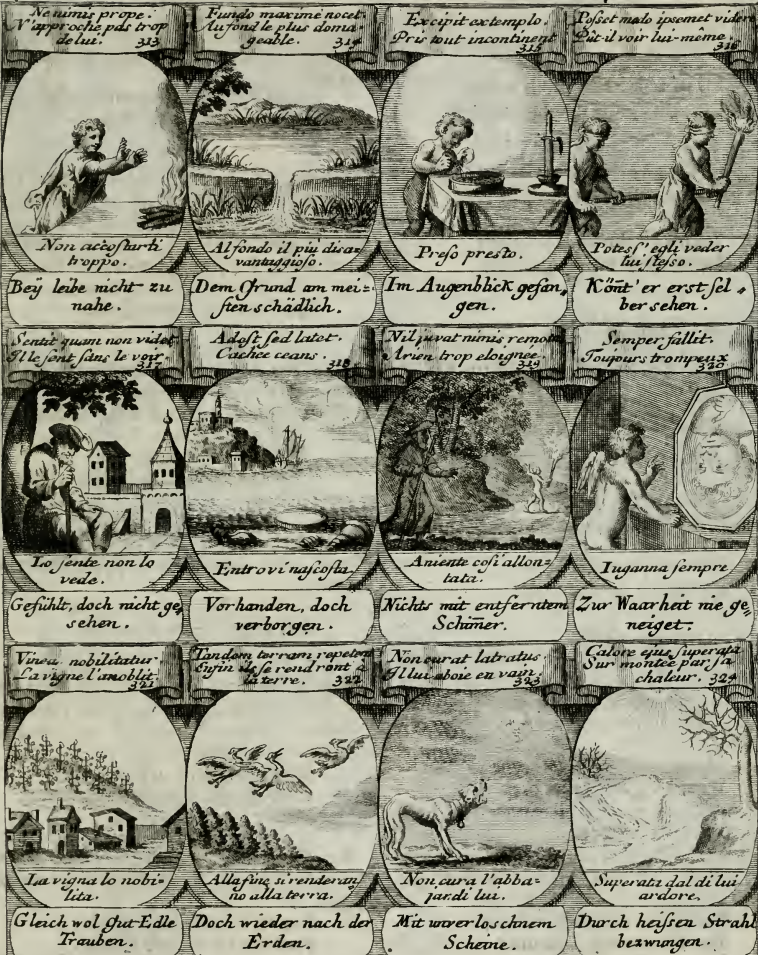 Ne nimis prope.
N'approche pas trop
de lui. 313
Non accostarti
troppo.
Beÿ leibe nicht zu
nahe.
Fundo maximè nocet.
Au fond le plus doma
geable. 314
Al fondo il piu disa-
vantaggioso.
Dem Grund am mei-
sten schädlich.
Excipit extemplo.
Pris tout incontinent
315
Preso presto.
Im Augenblick gefan,
gen.
Posset modo ipsemet videre
Pût-il voir lui-meme.
316
Potess' egli veder
lui stesso.
Könt' er erst sel,
ber sehen.
Sentit quam non videt
Il le sent sans le voir.
317
Lo sente non lo
vede.
Gefühlt, doch nicht ge,
sehen.
Adest sed latet.
Cachee ceans.
318
Entro vi nascosta
Vorhanden, doch
verborgen.
Nil juvat nimis remota
A rien trop eloignee.
319
A niente cosi allon-
tata.
Nichts mit entferntem
Schimer.
Semper fallit.
Toujours trompeux
320
Iuganna sempre
Zur Waarheit nie ge,
neiget.
Vinea nobilitatur
La vigne l'anoblit.
321
La vigna lo nobi-
lita.
Gleich wol gut-Edle
Trauben.
Tandem terram repetent
Enfin ils se rendront à
la terre. 322
Alla fine si renderan,
no alla terra.
Doch wieder nach der
Erden.
Non curat latratus.
Il lui aboie en vain
323
Non cura l'abba-
jar di lui.
Mit unverloschnem
Scheine.
Calore ejus superata
Sur montée par sa
chaleur. 324
Superata dal di lui
ardore.
Durch heißen Strahl
bezwungen.